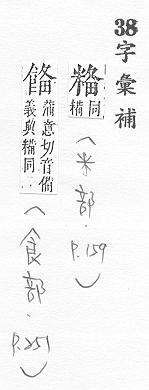 38字彙補
同糒
(米部,p.159)
蒲意切音備
義與糒同
(食部,p.251)